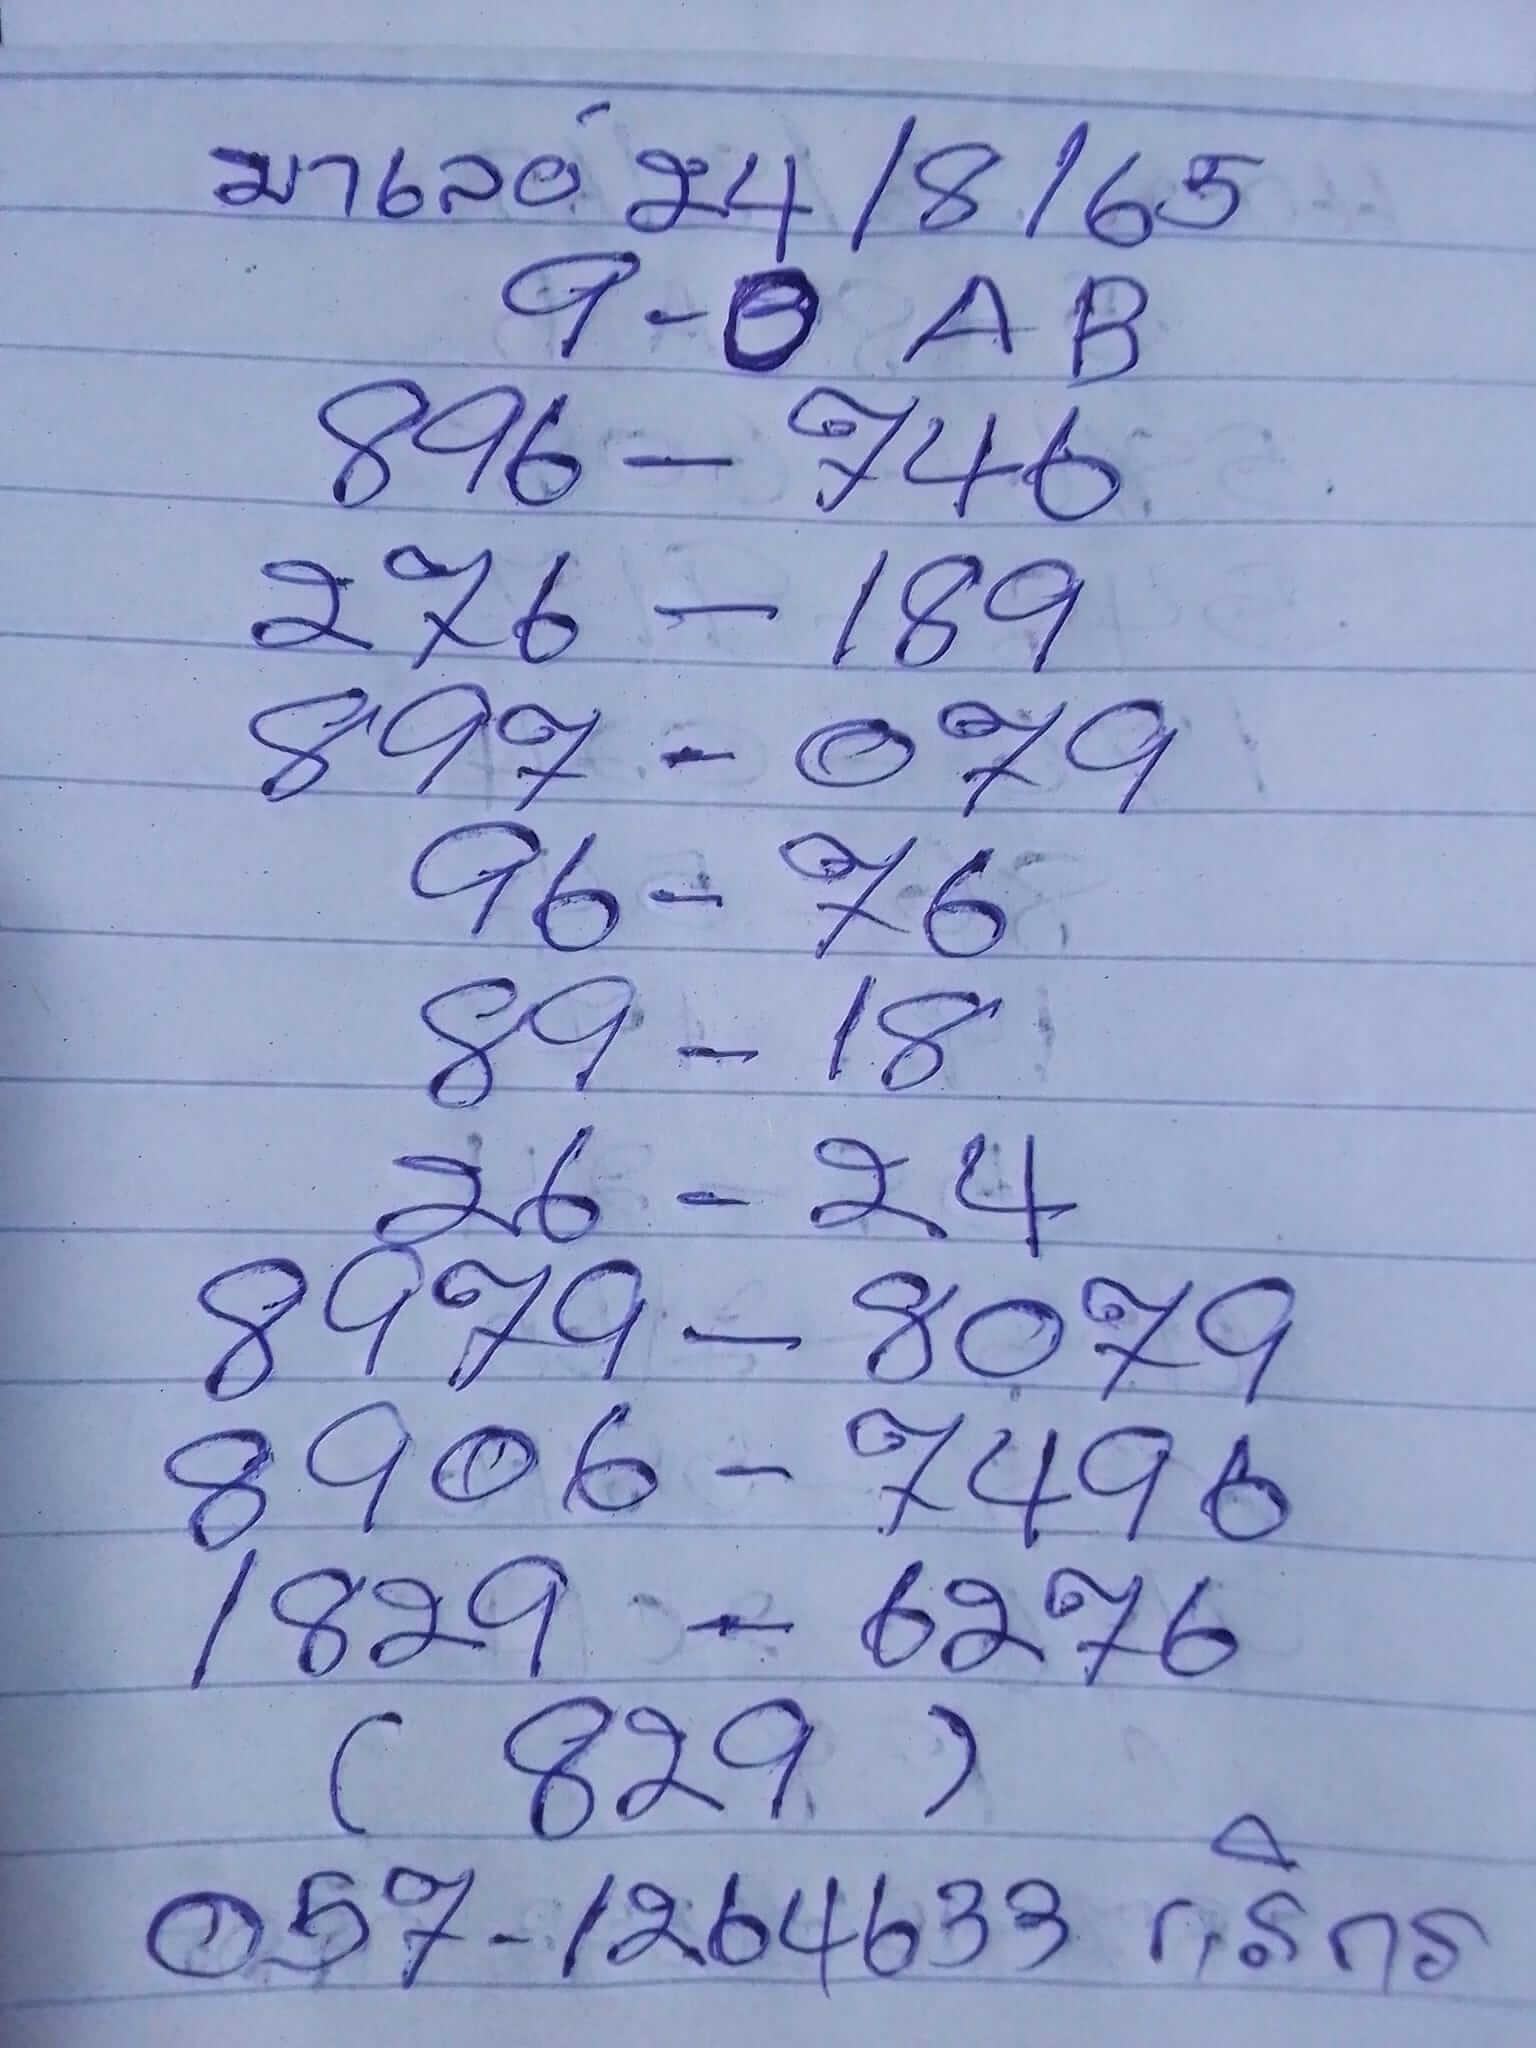 มาเลย์ 24/8/65
9-0 A B
896 - 746
276 - 189
897 - 079
96 - 76
89 - 18
26 - 24
8979 - 8079
8906 - 7496
1829 - 6276
( 829 )
057-1264633 กสิกร